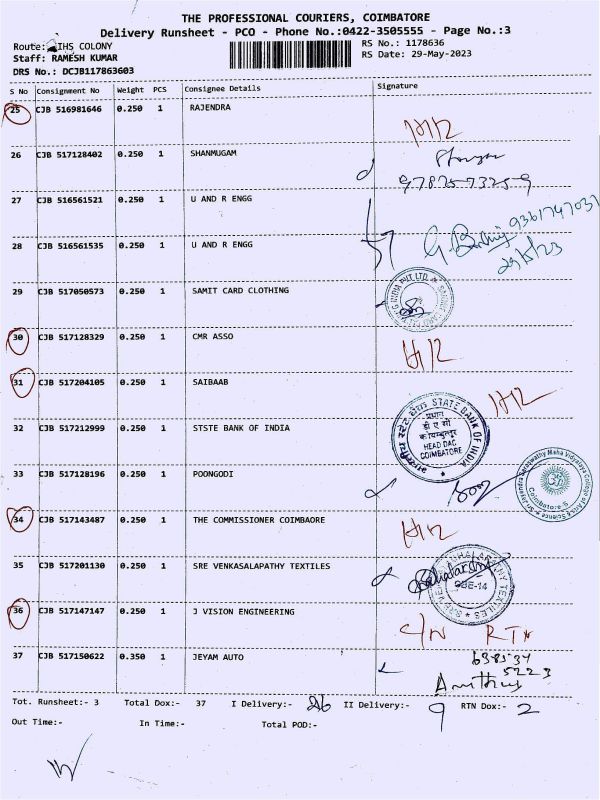 THE PROFESSIONAL COURIERS, COIMBATORE
Delivery Runsheet - PCO - Phone No.:0422-3505555 - Page No.:3
Route: IHS COLONY
RS No.: 1178636
Staff: RAMESH KUMAR
RS Date: 29-May-2023
DRS No.: DCJB117863603
S No Consignment No Weight PCS Consignee Details Signature
25 CJB 516981646 0.250 1 RAJENDRA
26 CJB 517128402 0.250 1 SHANMUGAM
9787573259
27 CJB 516561521 0.250 1 U AND R ENGG
9361747037
28 CJB 516561535 0.250 1 U AND R ENGG
29/5/23
29 CJB 517050573 0.250 1 SAMIT CARD CLOTHING
30 CJB 517128329 0.250 1 CMR ASSO
31 CJB 517204105 0.250 1 SAIBAAB
32 CJB 517212999 0.250 1 STSTE BANK OF INDIA
भारतीय स्टेट बैंक STATE BANK OF INDIA
प्रधान
डी ए सी
कोयम्बुत्तूर
HEAD DAC
COIMBATORE
33 CJB 517128196 0.250 1 POONGODI
Coimbatore-5
34 CJB 517143487 0.250 1 THE COMMISSIONER COIMBAORE
35 CJB 517201130 0.250 1 SRE VENKASALAPATHY TEXTILES
CBE-14
36 CJB 517147147 0.250 1 J VISION ENGINEERING
C/N RTN
37 CJB 517150622 0.350 1 JEYAM AUTO
638534
5223
Tot. Runsheet:- 3 Total Dox:- 37 I Delivery:- 26 II Delivery:- 9 RTN Dox:- 2
Out Time:- In Time:- Total POD:-